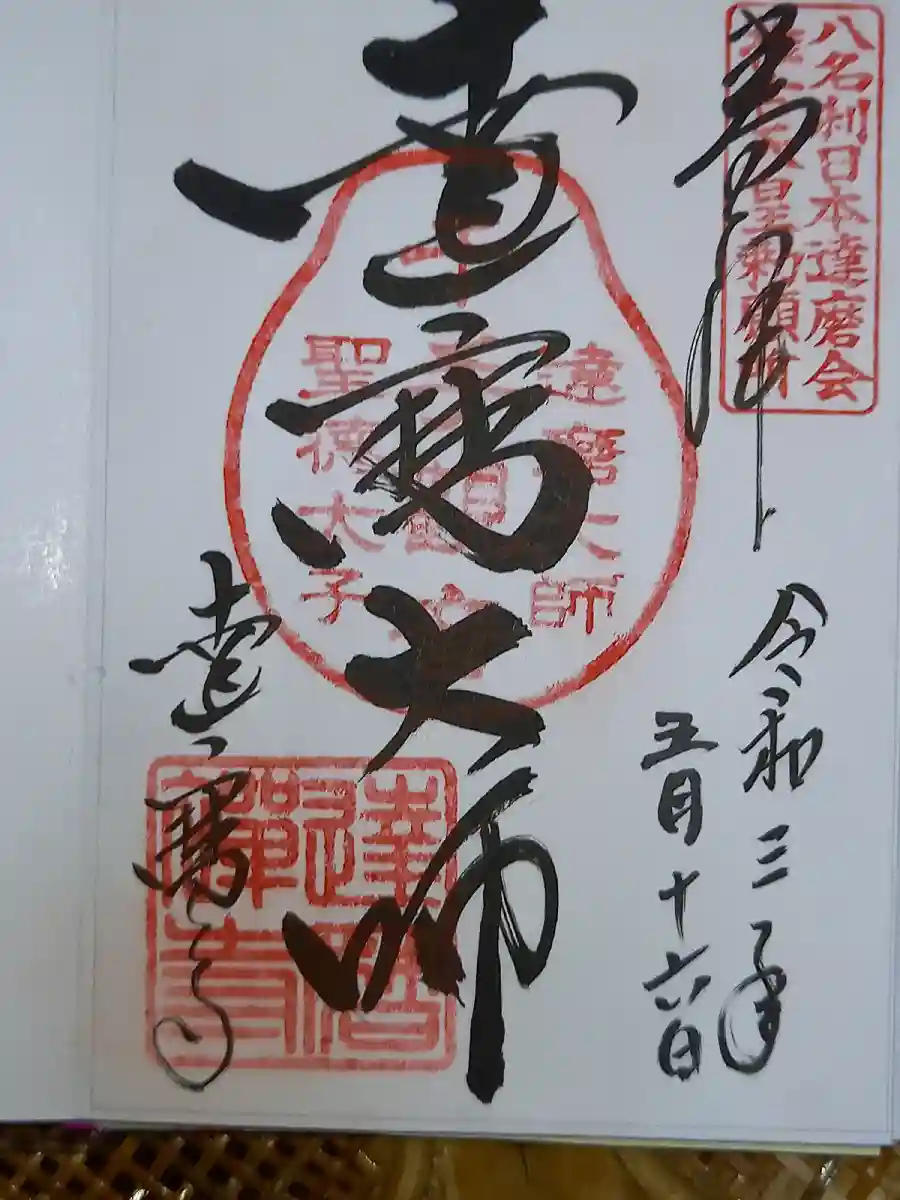 八名刹日本達磨会
天皇勅願所
奉拝
令和三年
五月十六日
達磨大師
達磨大師
聖徳太子
達磨寺
達磨禅寺